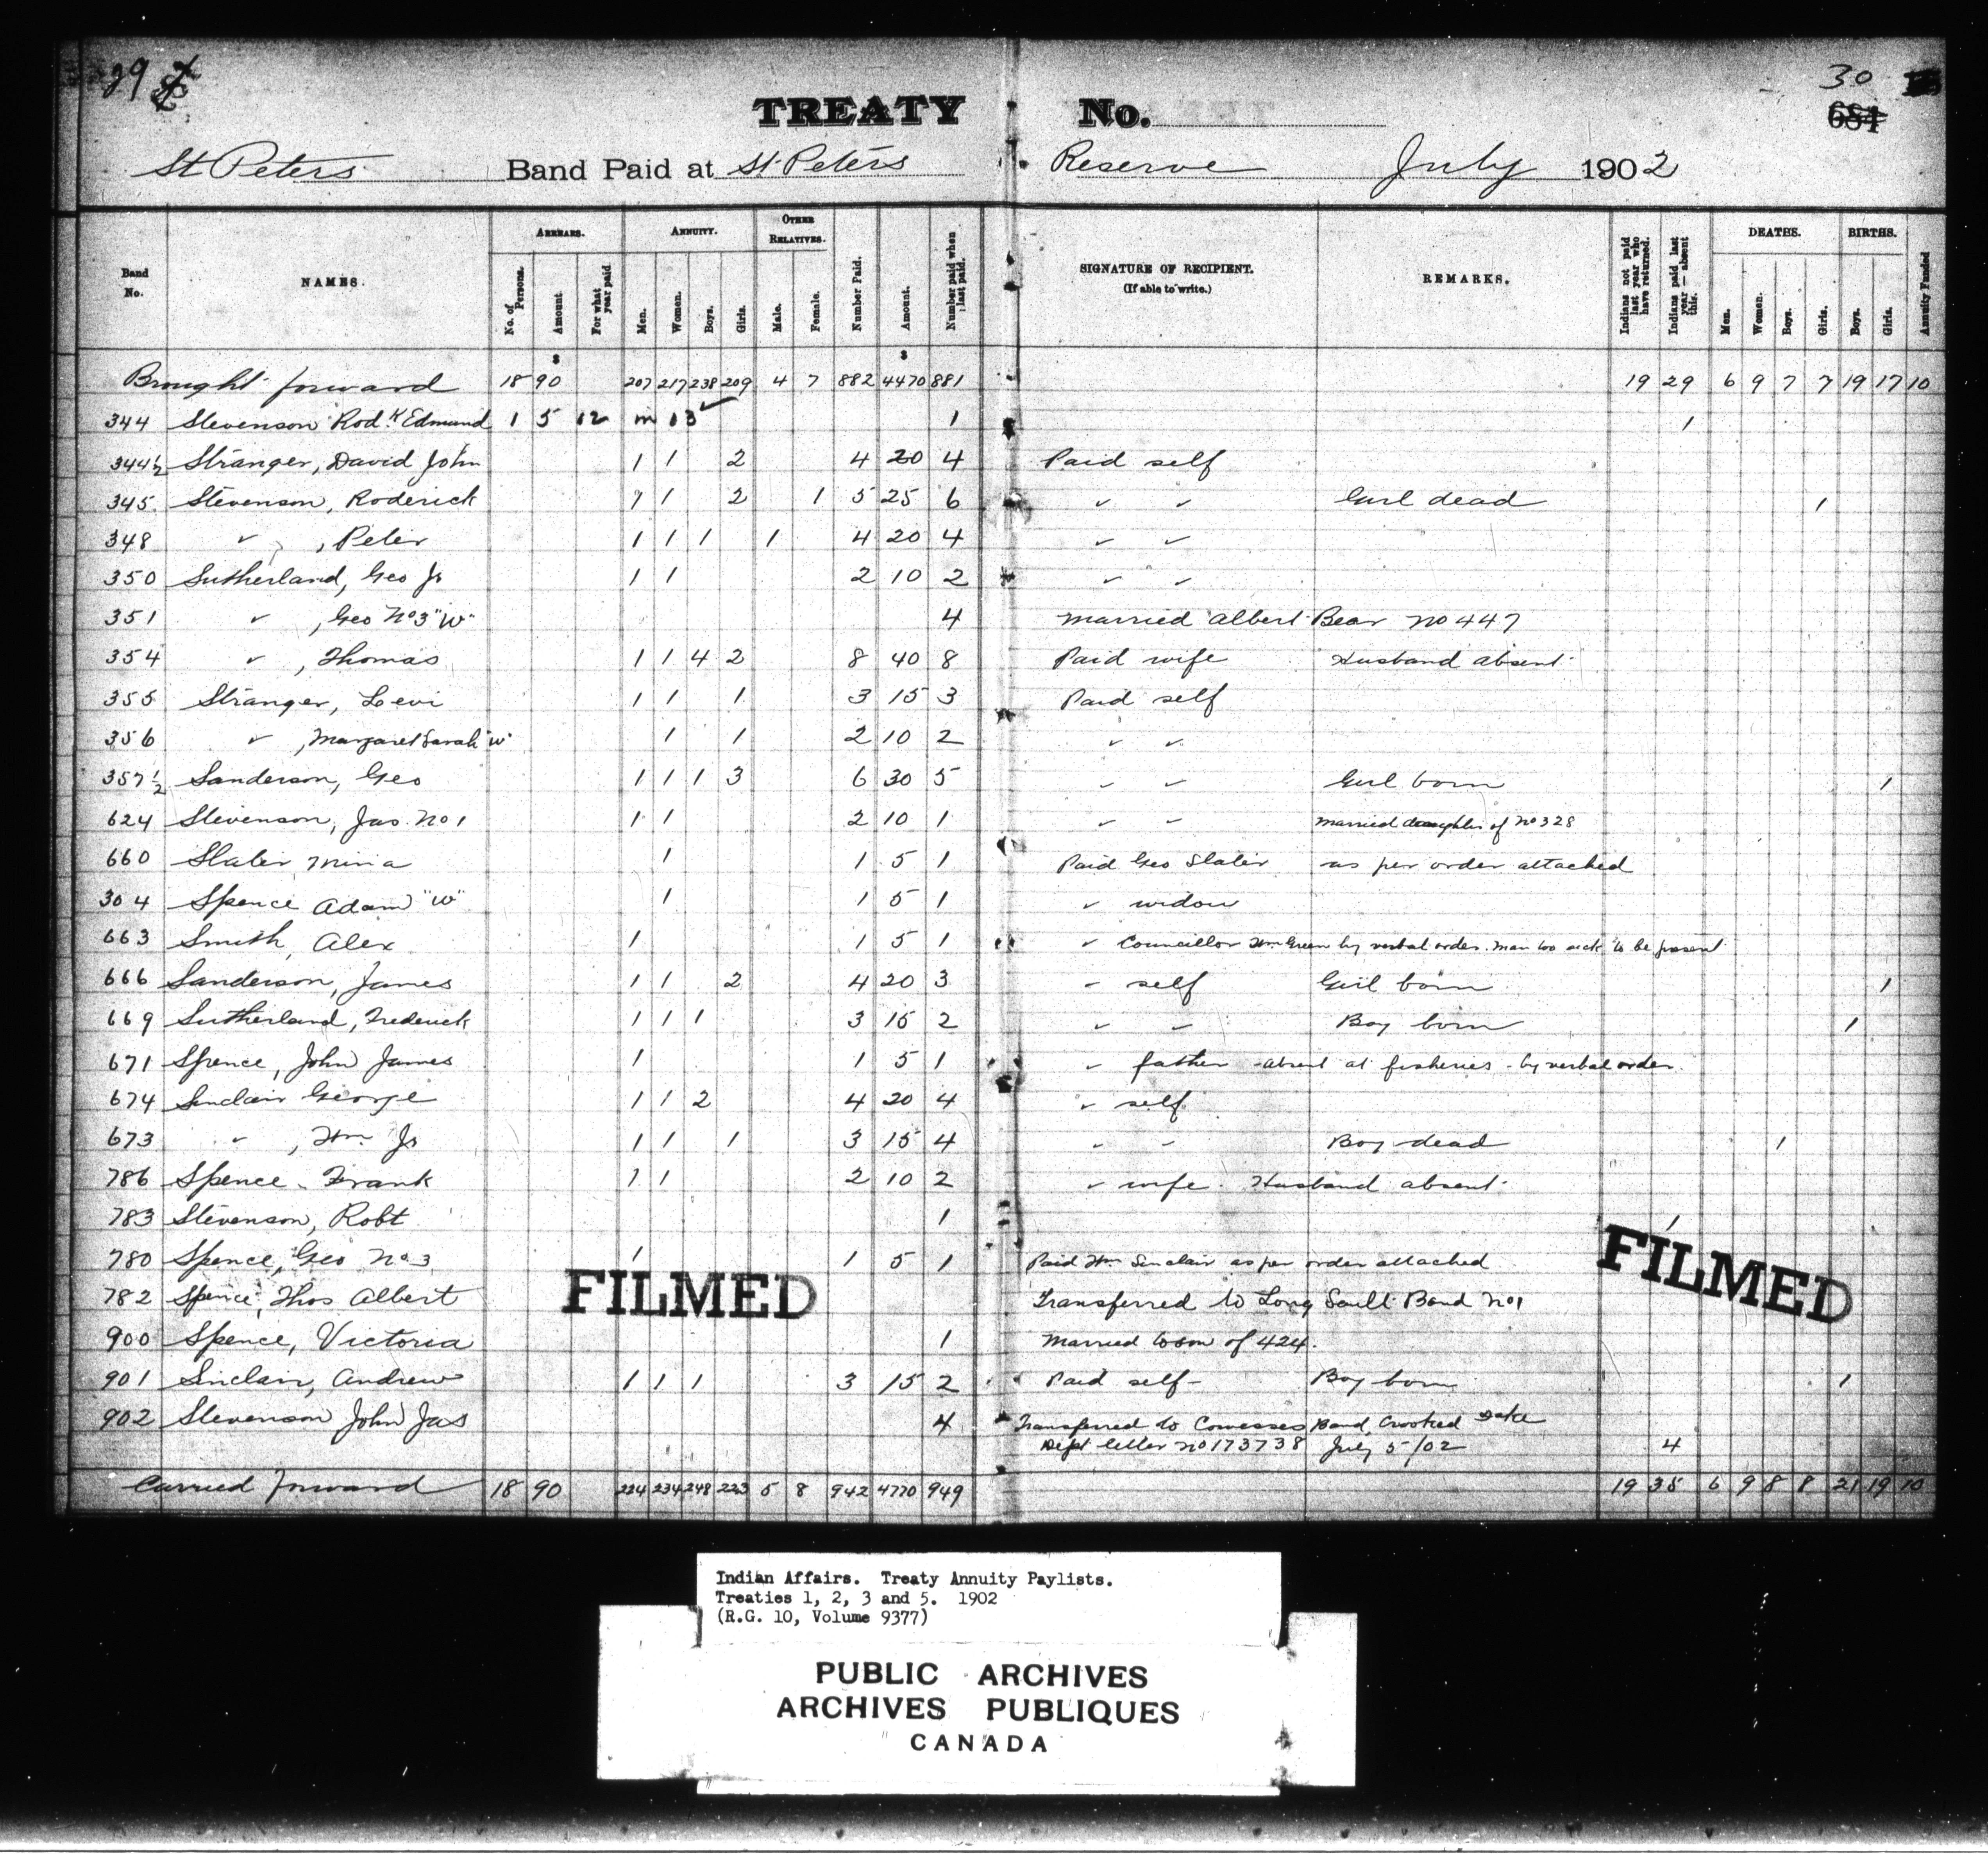 29
30
684
TREATY No.
St Peters Band Paid at St Peters Reserve July 1902
Band No. NAMES. ARREARS. No. of Persons. Amount For what year paid ANNUITY. Men. Women. Boys. Girls. OTHER RELATIVES. Male. Female. Number Paid. Amount. Number paid when last paid. SIGNATURE OF RECIPIENT. (If able to write.) REMARKS. Indians not paid last year who have returned. Indians paid last year — absent this. DEATHS. Men. Women. Boys. Girls. BIRTHS. Boys. Girls. Annuity Funded
$ $
Brought forward 18 90 207 217 238 209 4 7 882 4470 881 19 29 6 9 7 7 19 17 10
344 Stevenson Rod.k Edmund 1 5 02 in 03 ✓ 1 1
344½ Stranger, David John 1 1 2 4 20 4 Paid self
345 Stevenson, Roderick 1 1 2 1 5 25 6 ✓ ✓ Girl dead 1
348 ✓ , Peter 1 1 1 1 4 20 4 ✓ ✓
350 Sutherland, Geo Jr 1 1 2 10 2 ✓ ✓
351 ✓ , Geo No 3 "W" 4 Married Albert Bear No 447
354 ✓ , Thomas 1 1 4 2 8 40 8 Paid wife Husband absent
355 Stranger, Levi 1 1 1 3 15 3 Paid self
356 ✓ , Margaret Sarah "W" 1 1 2 10 2 ✓ ✓
357½ Sanderson, Geo 1 1 1 3 6 30 5 ✓ ✓ Girl born 1
624 Stevenson, Jas. No 1 1 1 2 10 1 ✓ ✓ Married daughter of No 328
660 Slater Mina 1 1 5 1 Paid Geo Slater as per order attached
304 Spence Adam "W" 1 1 5 1 ✓ widow
663 Smith, Alex 1 1 5 1 ✓ Councillor Wm Green by verbal order. Man too sick to be present
666 Sanderson, James 1 1 2 4 20 3 ✓ self Girl born 1
669 Sutherland, Frederick 1 1 1 3 15 2 ✓ ✓ Boy born 1
671 Spence, John James 1 1 5 1 ✓ father - absent at fisheries - by verbal order.
674 Sinclair George 1 1 2 4 20 4 ✓ self
673 ✓ , Wm Jr 1 1 1 3 15 4 ✓ ✓ Boy dead 1
786 Spence Frank 1 1 2 10 2 ✓ wife. Husband absent
783 Stevenson, Robt 1 1
780 Spence, Geo No 3 1 1 5 1 Paid Wm Sinclair as per order attached
FILMED
FILMED
782 Spence, Thos Albert Transferred to Long Sault Band No 1
900 Spence, Victoria 1 Married to son of 424.
901 Sinclair, Andrew 1 1 1 3 15 2 Paid self - Boy born 1
902 Stevenson John Jas 4 Transferred to Cowesses Band, Crooked Lake
Dept letter No 173738 July 5/02 4
Carried forward 18 90 224 234 248 223 5 8 942 4770 949 19 35 6 9 8 8 21 19 10
Indian Affairs. Treaty Annuity Paylists.
Treaties 1, 2, 3 and 5. 1902
(R.G. 10, Volume 9377)
PUBLIC ARCHIVES
ARCHIVES PUBLIQUES
CANADA